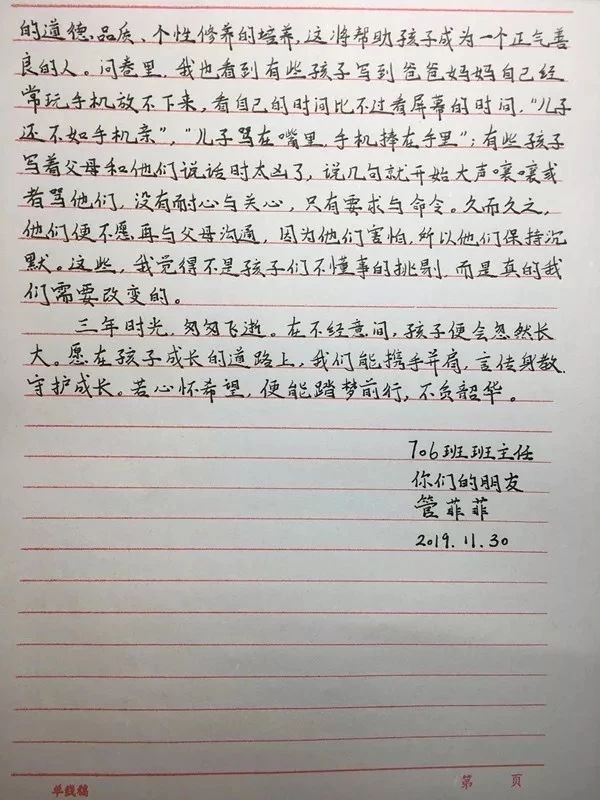 的道德品质、个性修养的培养,这将帮助孩子成为一个正气善
良的人。问卷里,我也看到有些孩子写到爸爸妈妈自己经
常玩手机放不下来,看自己的时间比不过看屏幕的时间,“儿子
还不如手机亲”,“儿子骂在嘴里,手机捧在手里”;有些孩子
写着父母和他们说话时太凶了,说几句就开始大声嚷嚷或
者骂他们,没有耐心与关心,只有要求与命令。久而久之,
他们便不愿再与父母沟通,因为他们害怕,所以他们保持沉
默。这些,我觉得不是孩子们不懂事的挑剔,而是真的我
们需要改变的。
三年时光,匆匆飞逝。在不经意间,孩子便会忽然长
大。愿在孩子成长的道路上,我们能携手并肩,言传身教,
守护成长。若心怀希望,便能踏梦前行,不负韶华。
706班班主任
你们的朋友
管菲菲
2019.11.30
单线稿
第 页